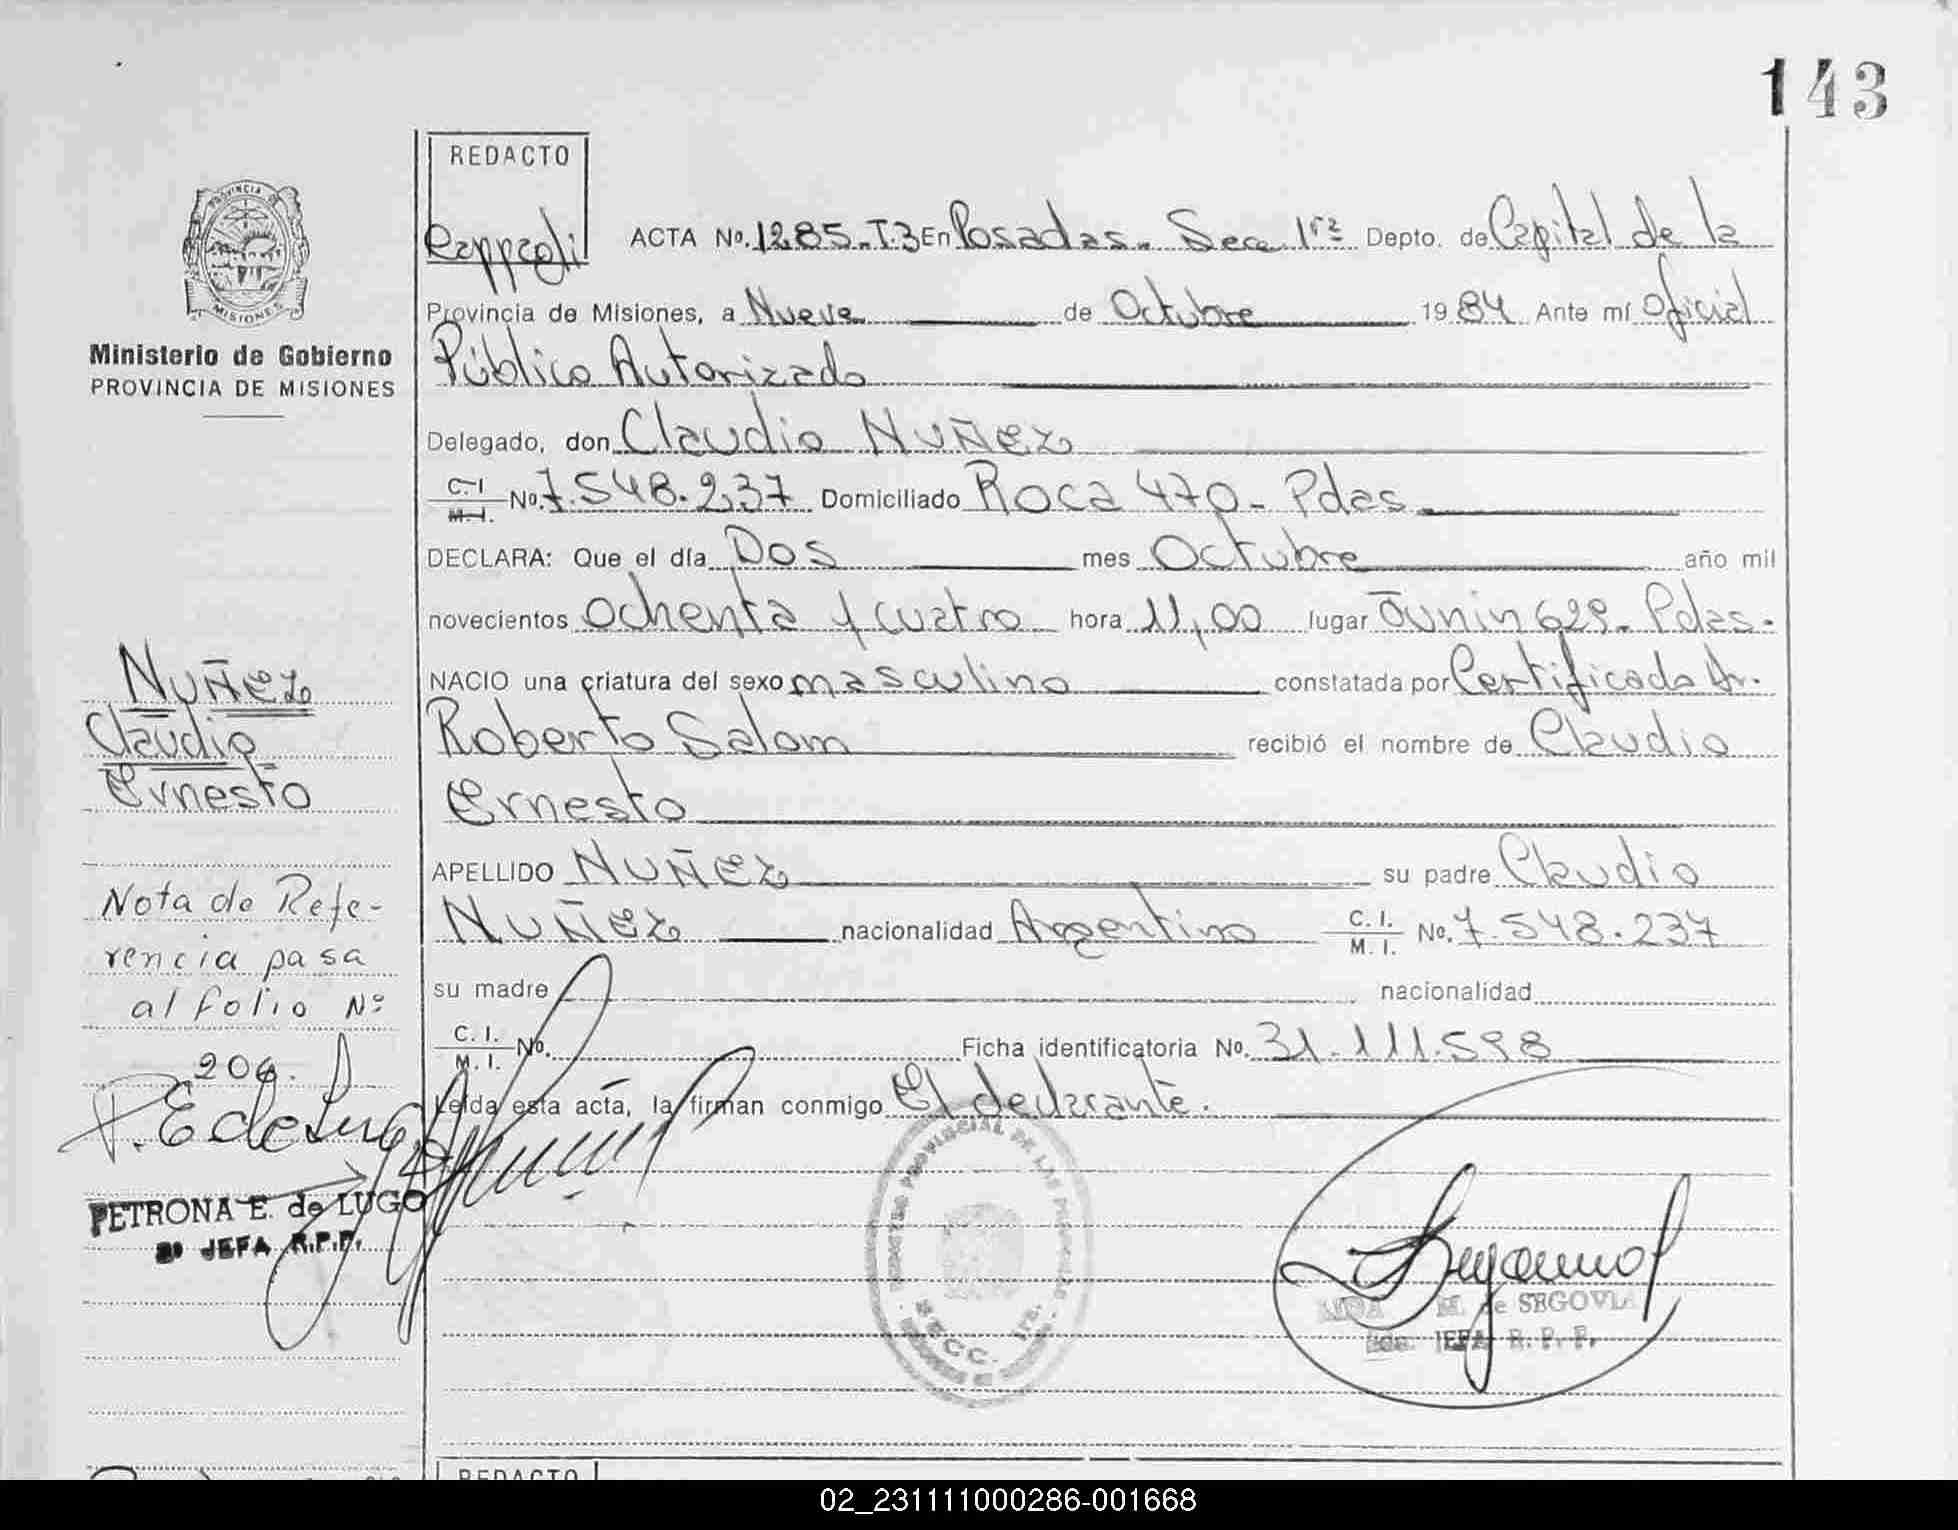 143
REDACTO
ACTA No. 1285.-T.3 En Posadas.- Secc 1ra Depto. de Capital de la
Provincia de Misiones, a Nueve de Octubre 1984 Ante mí Oficial
Público Autorizado
Delegado, don Claudio NUÑEZ
C.I. M.I. No. 7.548.237 Domiciliado Roca 470- Pdas.
DECLARA: Que el día Dos mes Octubre año mil
novecientos Ochenta y cuatro hora 11,00 lugar Junin 629.- Pdas.-
NACIO una criatura del sexo masculino constatada por Certificado Dr.
Roberto Salom recibió el nombre de Claudio
Ernesto
APELLIDO NUÑEZ su padre Claudio
NUÑEZ nacionalidad Argentino C. I. M. I. No. 7.548.237
su madre nacionalidad
C. I. M. I. No. Ficha identificatoria No. 31.111.598
Leída esta acta, la firman conmigo El declarante.
PROVINCIA DE
MISIONES
Ministerio de Gobierno
PROVINCIA DE MISIONES
NUÑEZ
Claudio
Ernesto
Nota de Refe-
rencia pasa
al folio Nº
206.
P. E de Lugo
PETRONA E. de LUGO
2º JEFA R.P.P.
REGISTRO PROVINCIAL DE LAS PERSONAS
SECC. 1ra.
M. de SEGOVIA
2da. JEFA R. P. P.
REDACTO
02_231111000286-001668